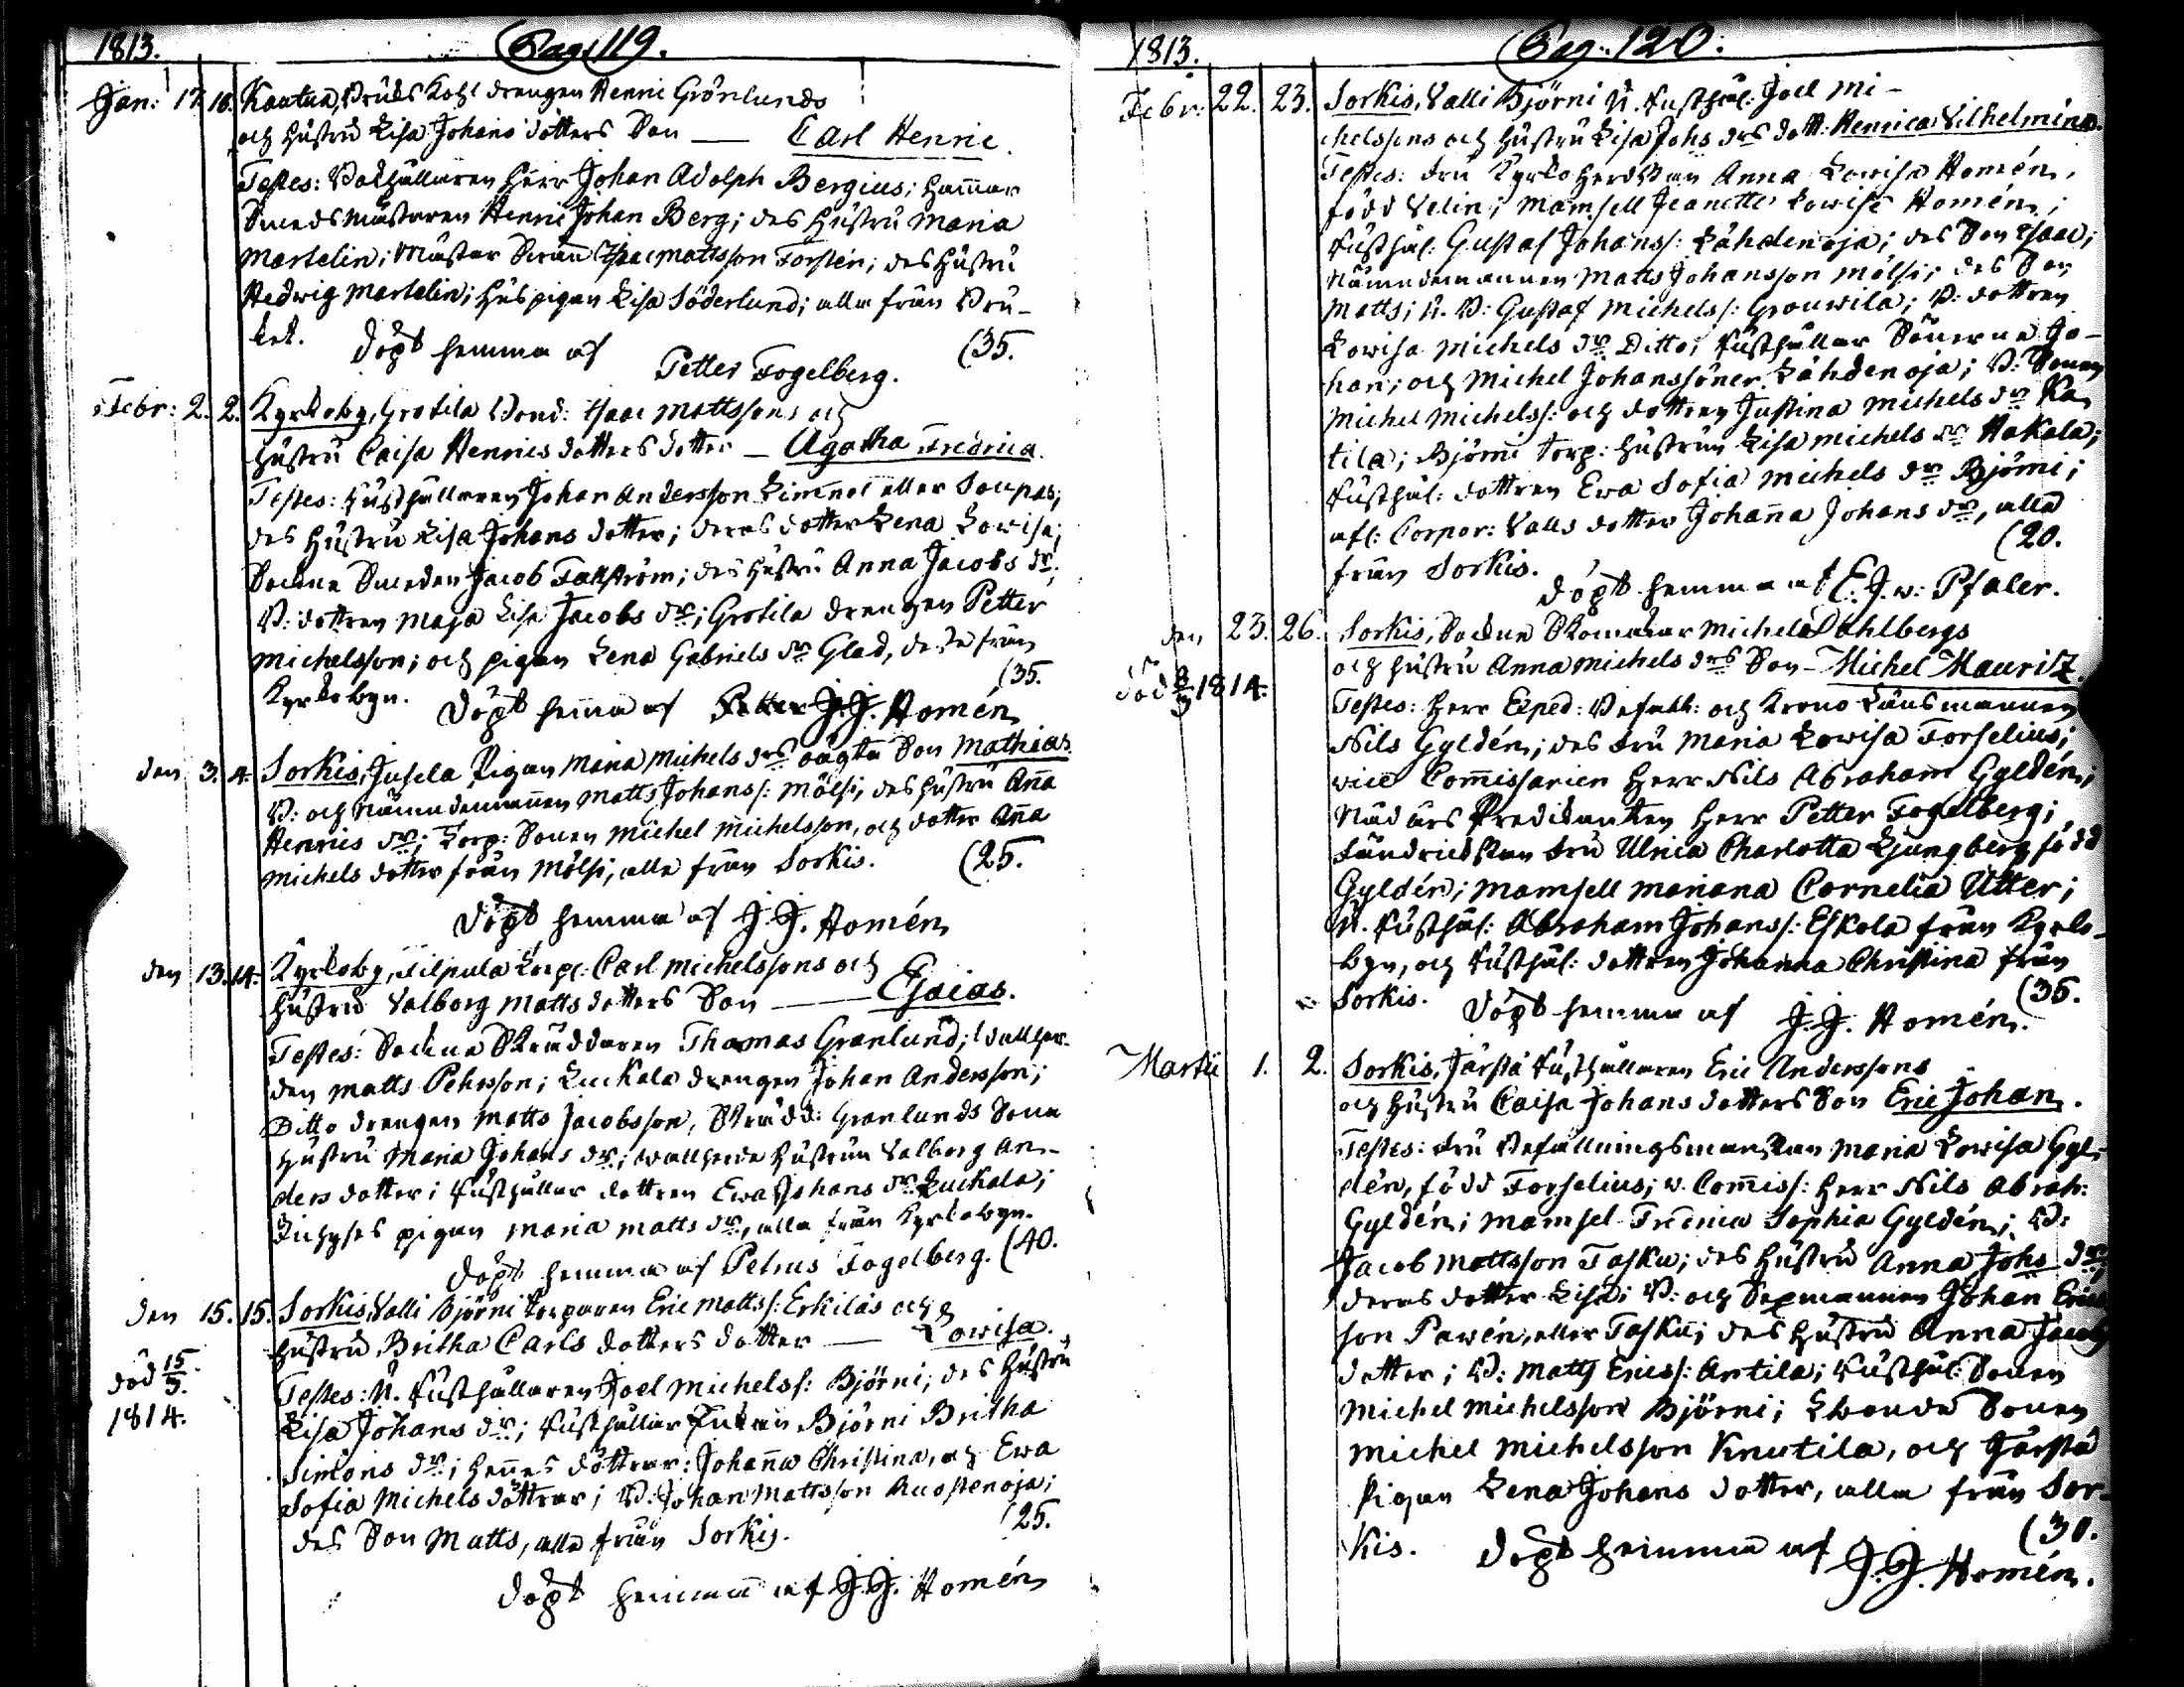 1813. Pag. 119.
Jan: 17. 18. Kautua, Bruks Kohl drengen Henric Grönlunds
och hustru Lisa Johans dotters Son — Carl Henric.
Testes: Bokhållaren Herr Johan Adolph Bergius; hammar
Smeds mästaren Henric Johan Berg; des hustru Maria
Martelin; Mäster Sven Isaac Mattsson Forstén; des hustru
Hedwig Martelin; hus pigan Lisa Söderlund; alla från Bru-
ket. döpt hemma af (35.
Petter Fogelberg.
Febr: 2. 2. Kyrkoby, Grotila Bond: Isaac Mattssons och
hustru Caisa Henrics dotters dotter — Agatha Fredrica.
Testes: Johan Andersson eller
des hustru Lisa Johans dotter; deras dotter Lena Lowisa;
Sockne Smeden Jacob Fallström; des hustru Anna Jacobs dr;
B: dottren Maja Lisa Jacobs dr; Grotila drengen Petter
Michelsson; och pigan Lena Gabriels dr Glad, desse från
Kyrkobyn. (35.
döpt hemma af J. J. Homén
den 3. 4. Sorkis, Jusela Pigan Maria Michels drs oägta Son Mathias.
B: och Nämndemannen Matts Johans/: Mölsi, des hustru Anna
Henrics dr; Torp: Sonen Michel Michelsson, och dotter Anna
Michels dotter från Mölsi, alla från Sorkis. (25.
döpt hemma af J. J. Homén
den 13. 14. Kyrkoby, Filpula Torp: Carl Michelssons och
hustru Valborg Matts dotters Son — Esaias.
Testes: Sockne Skräddaren Thomas Granlund; Vallher-
den Matts Pehrsson; Luckala drengen Johan Andersson;
Ditto drengen Matts Jacobsson, Skrädd: Granlunds Sone
hustru Maria Johans dr; wallherde hustrun Valborg An-
ders dotter; Rusthållar dottren Ewa Johans dr Luckala;
pigan Maria Matts dr, alla från Kyrkobyn.
döpt hemma af Petrus Fogelberg. (40.
den 15. 15. Sorkis, Valli Björni torparen Eric Matts/: Erkiläs och
hustru Britha Carls dotters dotter — Lowisa.
död 15/3. 1814.
Testes: N. Rusthållaren Joel Michels/: Björni; des hustru
Lisa Johans dr; Rusthållar Enkan Björni Britha
Simons dr; hennes döttrar: Johanna Christina, och Ewa
Sofia Michels döttrar; B: Johan Mattsson Ruostenoja;
des Son Matts, alla från Sorkis. (25.
döpt hemma af J. J. Homén
1813. Pag: 120.
Febr: 22. 23. Sorkis, Valli Björni N. Rusthål: Joel Mi-
chelssons och hustru Lisa Johs drs dott: Henrica Vilhelmina.
Testes: Fru Kyrkoherdskan Anna Lowisa Homén,
född Velin; Mamsell Jeanette Lowise Homén;
Rusthål: Gustaf Johans/: Lähdenoja; des Son Isaac;
Nämndemannen Matts Johansson Mölsi; des Son
Matts; N. B: Gustaf Michels/: Grouwila; B: dottren
Lowisa Michels dr Ditto; Rusthållar Sönerne Jo-
han; och Michel Johanssöner Lähdenoja; B: Sonen
Michel Michels/: och dottren Justina Michels dr Ka-
tila; Björni torp: hustrun Lisa Michels dr Hakala;
Rusthål: dottren Ewa Sofia Michels dr Björni;
afl: Corpor: Valls dotter Johanna Johans dr, alla
från Sorkis. (20.
döpt hemma af E. J. v: Pfaler.
den 23. 26. Sorkis, Sockne Skomakar Michel Dahlbergs
och hustru Anna Michels drs Son — Michel Mauritz.
död 1814.
Testes: Herr Exped: Befallt: och Krono Länsmannen
Nils Gyldén; des Fru Maria Lowisa Forselius;
vice Commissarien Herr Nils Abraham Gyldén;
Nådårs Predikanten Herr Petter Fogelberg;
Fändrickskan Fru Ulrica Charlotta Ljungberg född
Gyldén; Mamsell Mariana Cornelia Utter;
N. Rusthål: Abraham Johans/: Eskola från Kyrko-
byn, och Rusthål: dottren Johanna Christina från
Sorkis. (35.
döpt hemma af J. J. Homén.
Martii 1. 2. Sorkis, Järstä Rusthållaren Eric Anderssons
och hustru Caisa Johans dotters Son Eric Johan.
Testes: Fru Befallningsmanskan Maria Lowisa Gyl-
dén, född Forselius; v. Commis/: Herr Nils Abrah:
Gyldén; Mamsel Fredrica Sophia Gyldén; B:
Jacob Mattsson Tasku; des hustru Anna Johs dr;
deras dotter Lisa; B: och Sexmannen Johan Erics-
son Pawén, eller Tasku; des hustru Anna Jacobs
dotter; B: Matts Erics/: Antila; Rusthål: Sonen
Michel Michelsson Björni; Bonde Sonen
Michel Michelsson Knutila, och Järstä
Pigan Lena Johans dotter, alla från Sor-
kis. (30.
döpt hemma af J. J. Homén.